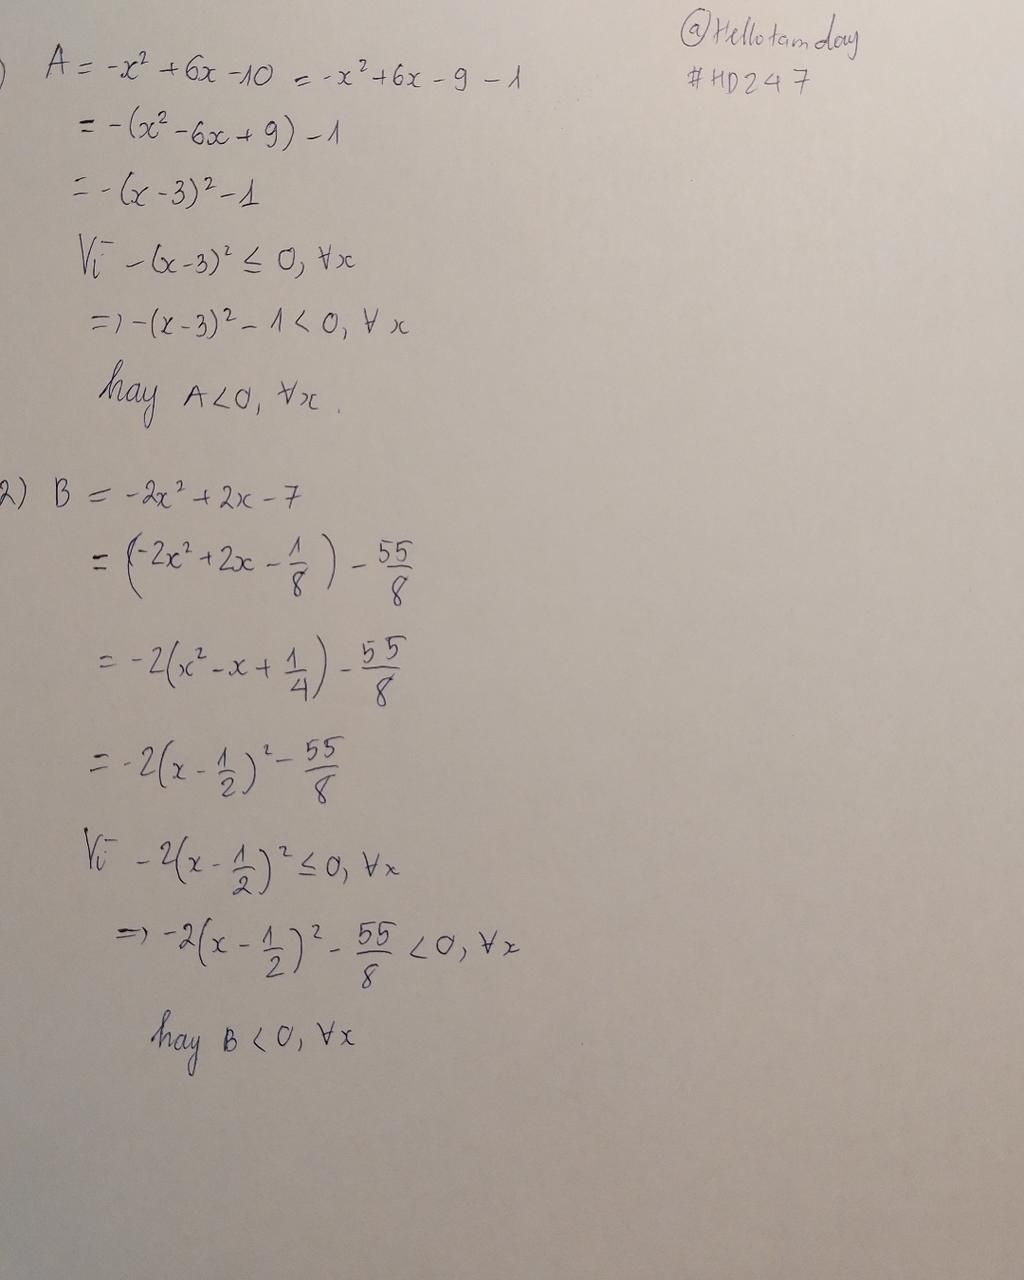 @Hellotamday
#HD247
) A = -x² + 6x - 10 = -x² + 6x - 9 - 1
= -(x² - 6x + 9) - 1
= -(x - 3)² - 1
Vì -(x - 3)² ≤ 0, ∀x
=> -(x - 3)² - 1 < 0, ∀x
hay A < 0, ∀x.
2) B = -2x² + 2x - 7
= (-2x² + 2x - 1/8) - 55/8
= -2(x² - x + 1/4) - 55/8
= -2(x - 1/2)² - 55/8
Vì -2(x - 1/2)² ≤ 0, ∀x
=> -2(x - 1/2)² - 55/8 < 0, ∀x
hay B < 0, ∀x